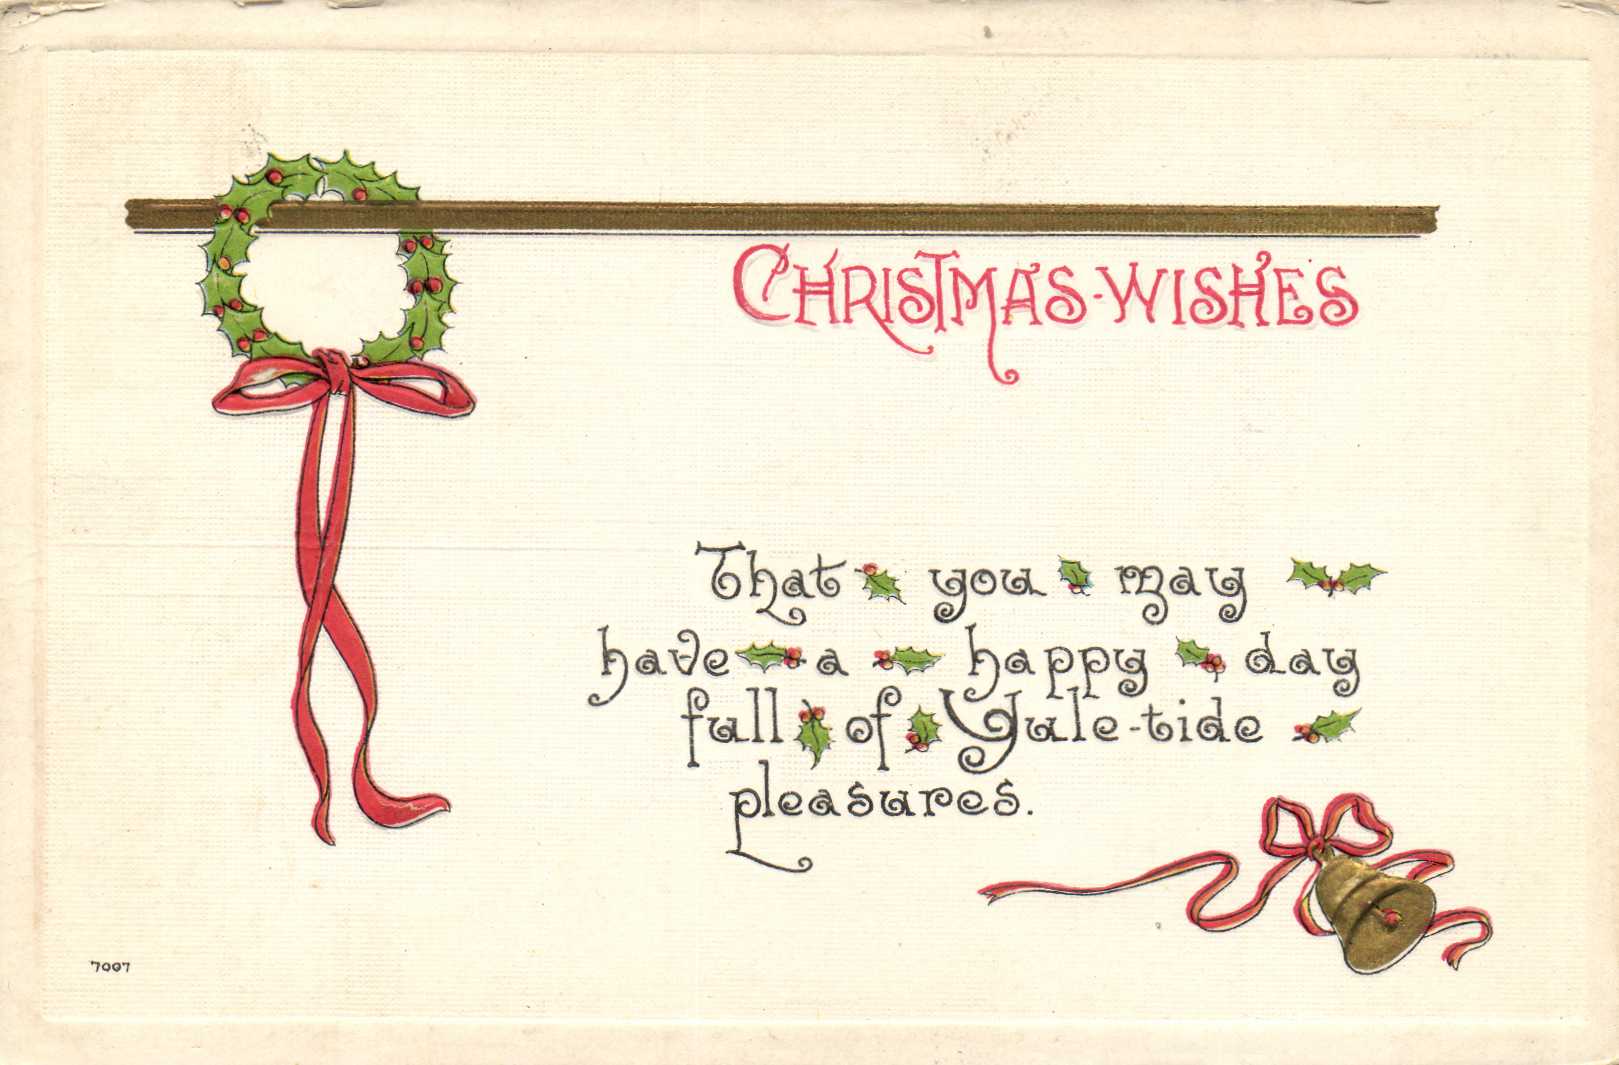 CHRISTMAS-WISHES
That you may
have a happy day
full of Yule-tide
pleasures.
7007